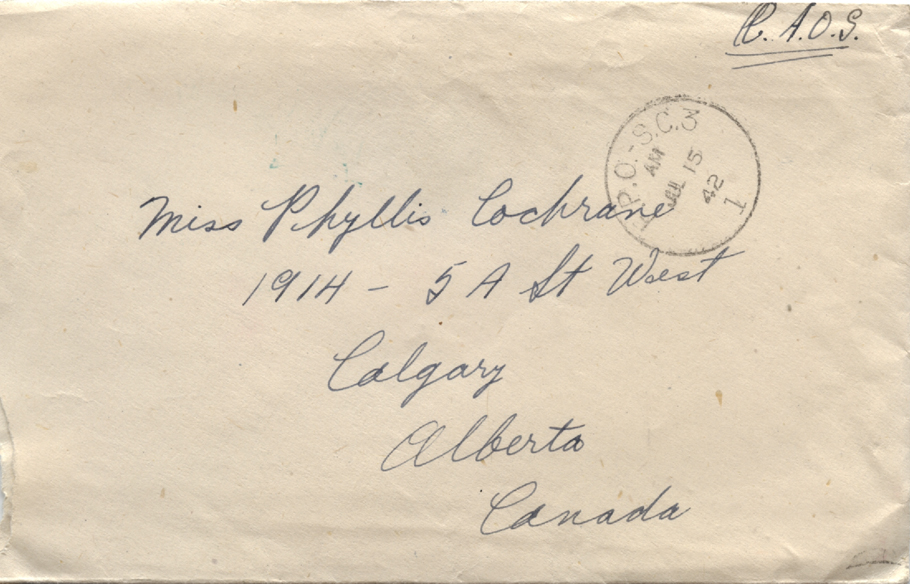 C. A. O. S.
P.O.-S.C.3
AM
JUL 15
42
1
Miss Phyllis Cochrane
1914 - 5 A St West
Calgary
Alberta
Canada